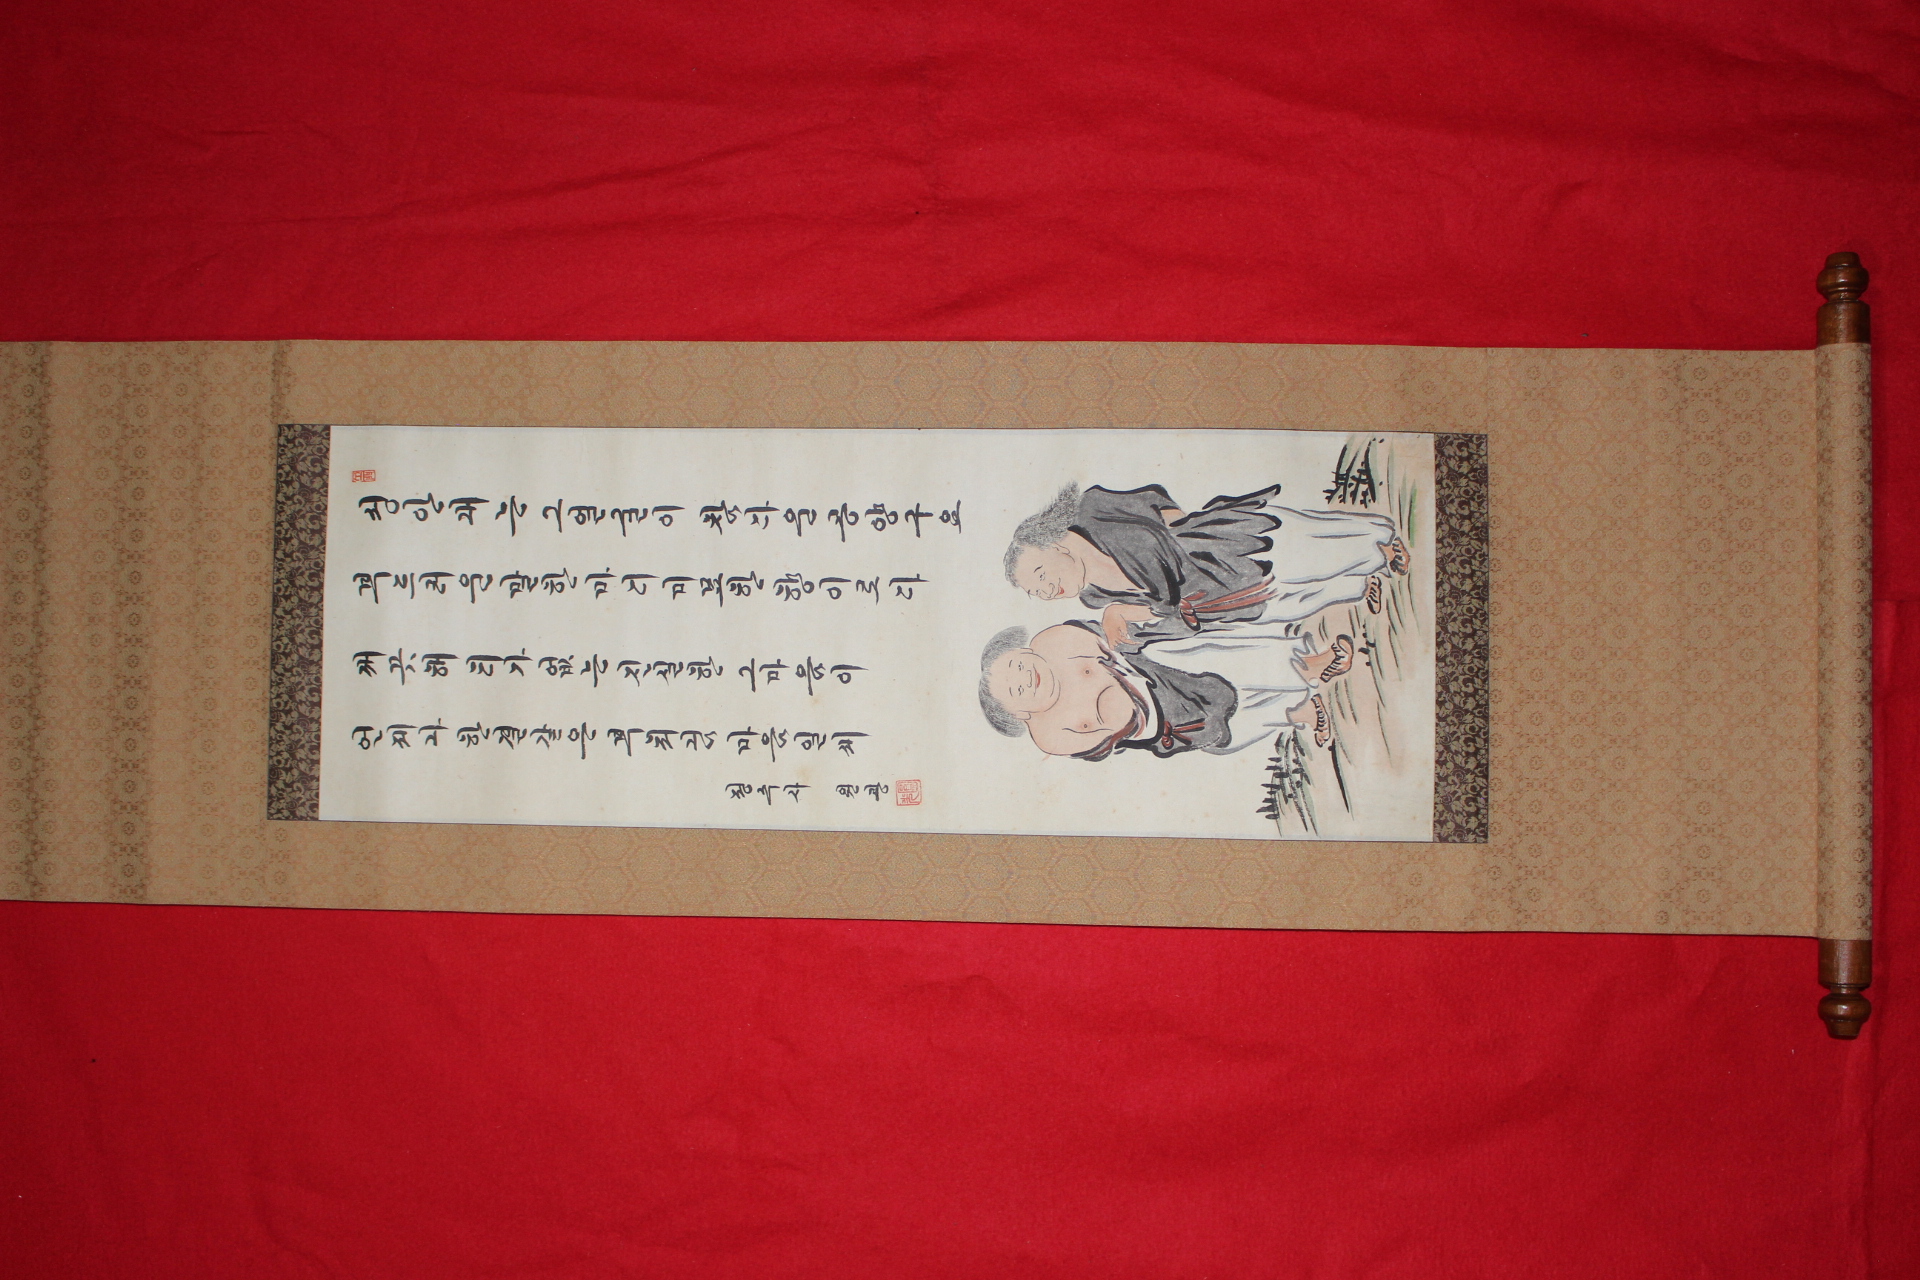 성안내는 그얼굴이 참다운 공양구요
부드러운 말한마디 미묘한 향이로다
깨끗해 티가 없는 진실한 그마음이
언제나 한결같은 부처님 마음일세
원광